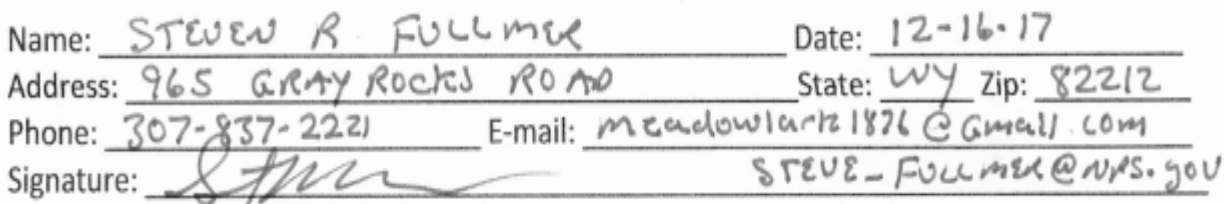 Name: STEVEN R FULLMER Date: 12-16-17
Address: 965 GRAY ROCKS ROAD State: WY Zip: 82212
Phone: 307-837-2221 E-mail: meadowlark1876@Gmail.com
Signature: STEVE-FULLMER@NPS.gov